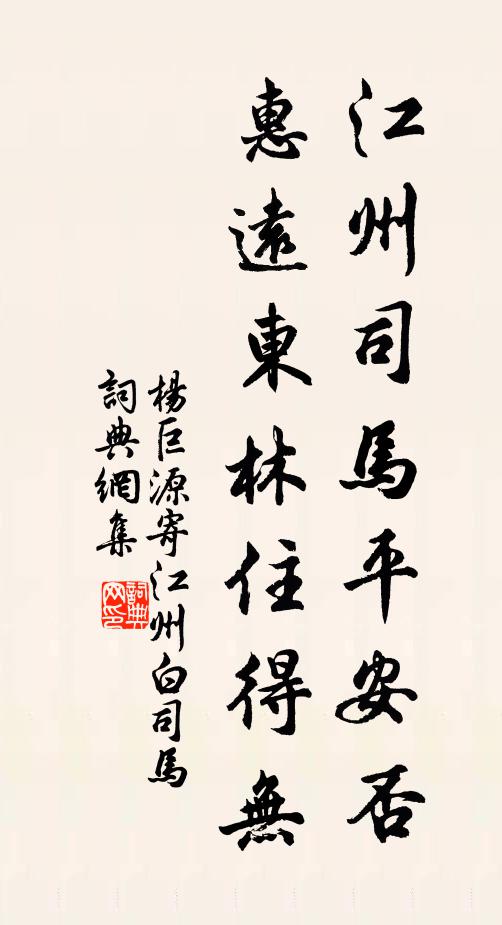 江州司馬平安否
惠遠東林住得無
楊巨源寄江州白司馬
詞典網集
詞典
网印